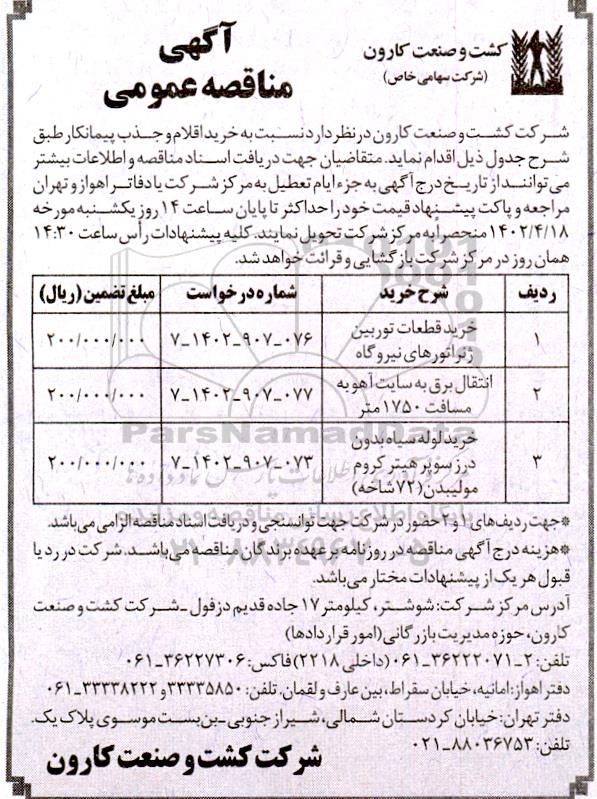 کشت و صنعت کارون
(شرکت سهامی خاص)
آگهی
مناقصه عمومی
شرکت کشت و صنعت کارون در نظر دارد نسبت به خرید اقلام و جذب پیمانکار طبق
شرح جدول ذیل اقدام نماید. متقاضیان جهت دریافت اسناد مناقصه و اطلاعات بیشتر
می‌توانند از تاریخ درج آگهی به جزء ایام تعطیل به مرکز شرکت یا دفاتر اهواز و تهران
مراجعه و پاکت پیشنهاد قیمت خود را حداکثر تا پایان ساعت ۱۴ روز یکشنبه مورخه
۱۴۰۲/۴/۱۸ منحصراً به مرکز شرکت تحویل نمایند. کلیه پیشنهادات رأس ساعت ۱۴:۳۰
همان روز در مرکز شرکت بازگشایی و قرائت خواهد شد.
ردیف شرح خرید شماره درخواست مبلغ تضمین (ریال)
۱ خرید قطعات توربین ژنراتورهای نیروگاه ۷-۱۴۰۲-۹۰۷-۰۷۶ ۲۰۰/۰۰۰/۰۰۰
۲ انتقال برق به سایت آهو به مسافت ۱۷۵۰ متر ۷-۱۴۰۲-۹۰۷-۰۷۷ ۲۰۰/۰۰۰/۰۰۰
۳ خرید لوله سیاه بدون درز سوپر هیتر کروم مولیبدن (۷۲ شاخه) ۷-۱۴۰۲-۹۰۷-۰۷۳ ۲۰۰/۰۰۰/۰۰۰
ParsNamadData
*جهت ردیف‌های ۱ و ۲ حضور در شرکت جهت توانسنجی و دریافت اسناد مناقصه الزامی می‌باشد.
*هزینه درج آگهی مناقصه در روزنامه بر عهده برندگان مناقصه می‌باشد. شرکت در رد یا
قبول هر یک از پیشنهادات مختار می‌باشد.
آدرس مرکز شرکت: شوشتر، کیلومتر ۱۷ جاده قدیم دزفول - شرکت کشت و صنعت
کارون، حوزه مدیریت بازرگانی (امور قراردادها)
تلفن: ۲-۳۶۲۲۲۰۷۱-۰۶۱ (داخلی ۲۲۱۸) فاکس: ۳۶۲۲۷۳۰۶-۰۶۱
دفتر اهواز: امانیه، خیابان سقراط، بین عارف و لقمان. تلفن: ۳۳۳۳۵۸۵۰ و ۳۳۳۳۸۲۲۲-۰۶۱
دفتر تهران: خیابان کردستان شمالی، شیراز جنوبی - بن‌بست موسوی پلاک یک.
تلفن: ۸۸۰۳۶۷۵۳-۰۲۱
شرکت کشت و صنعت کارون